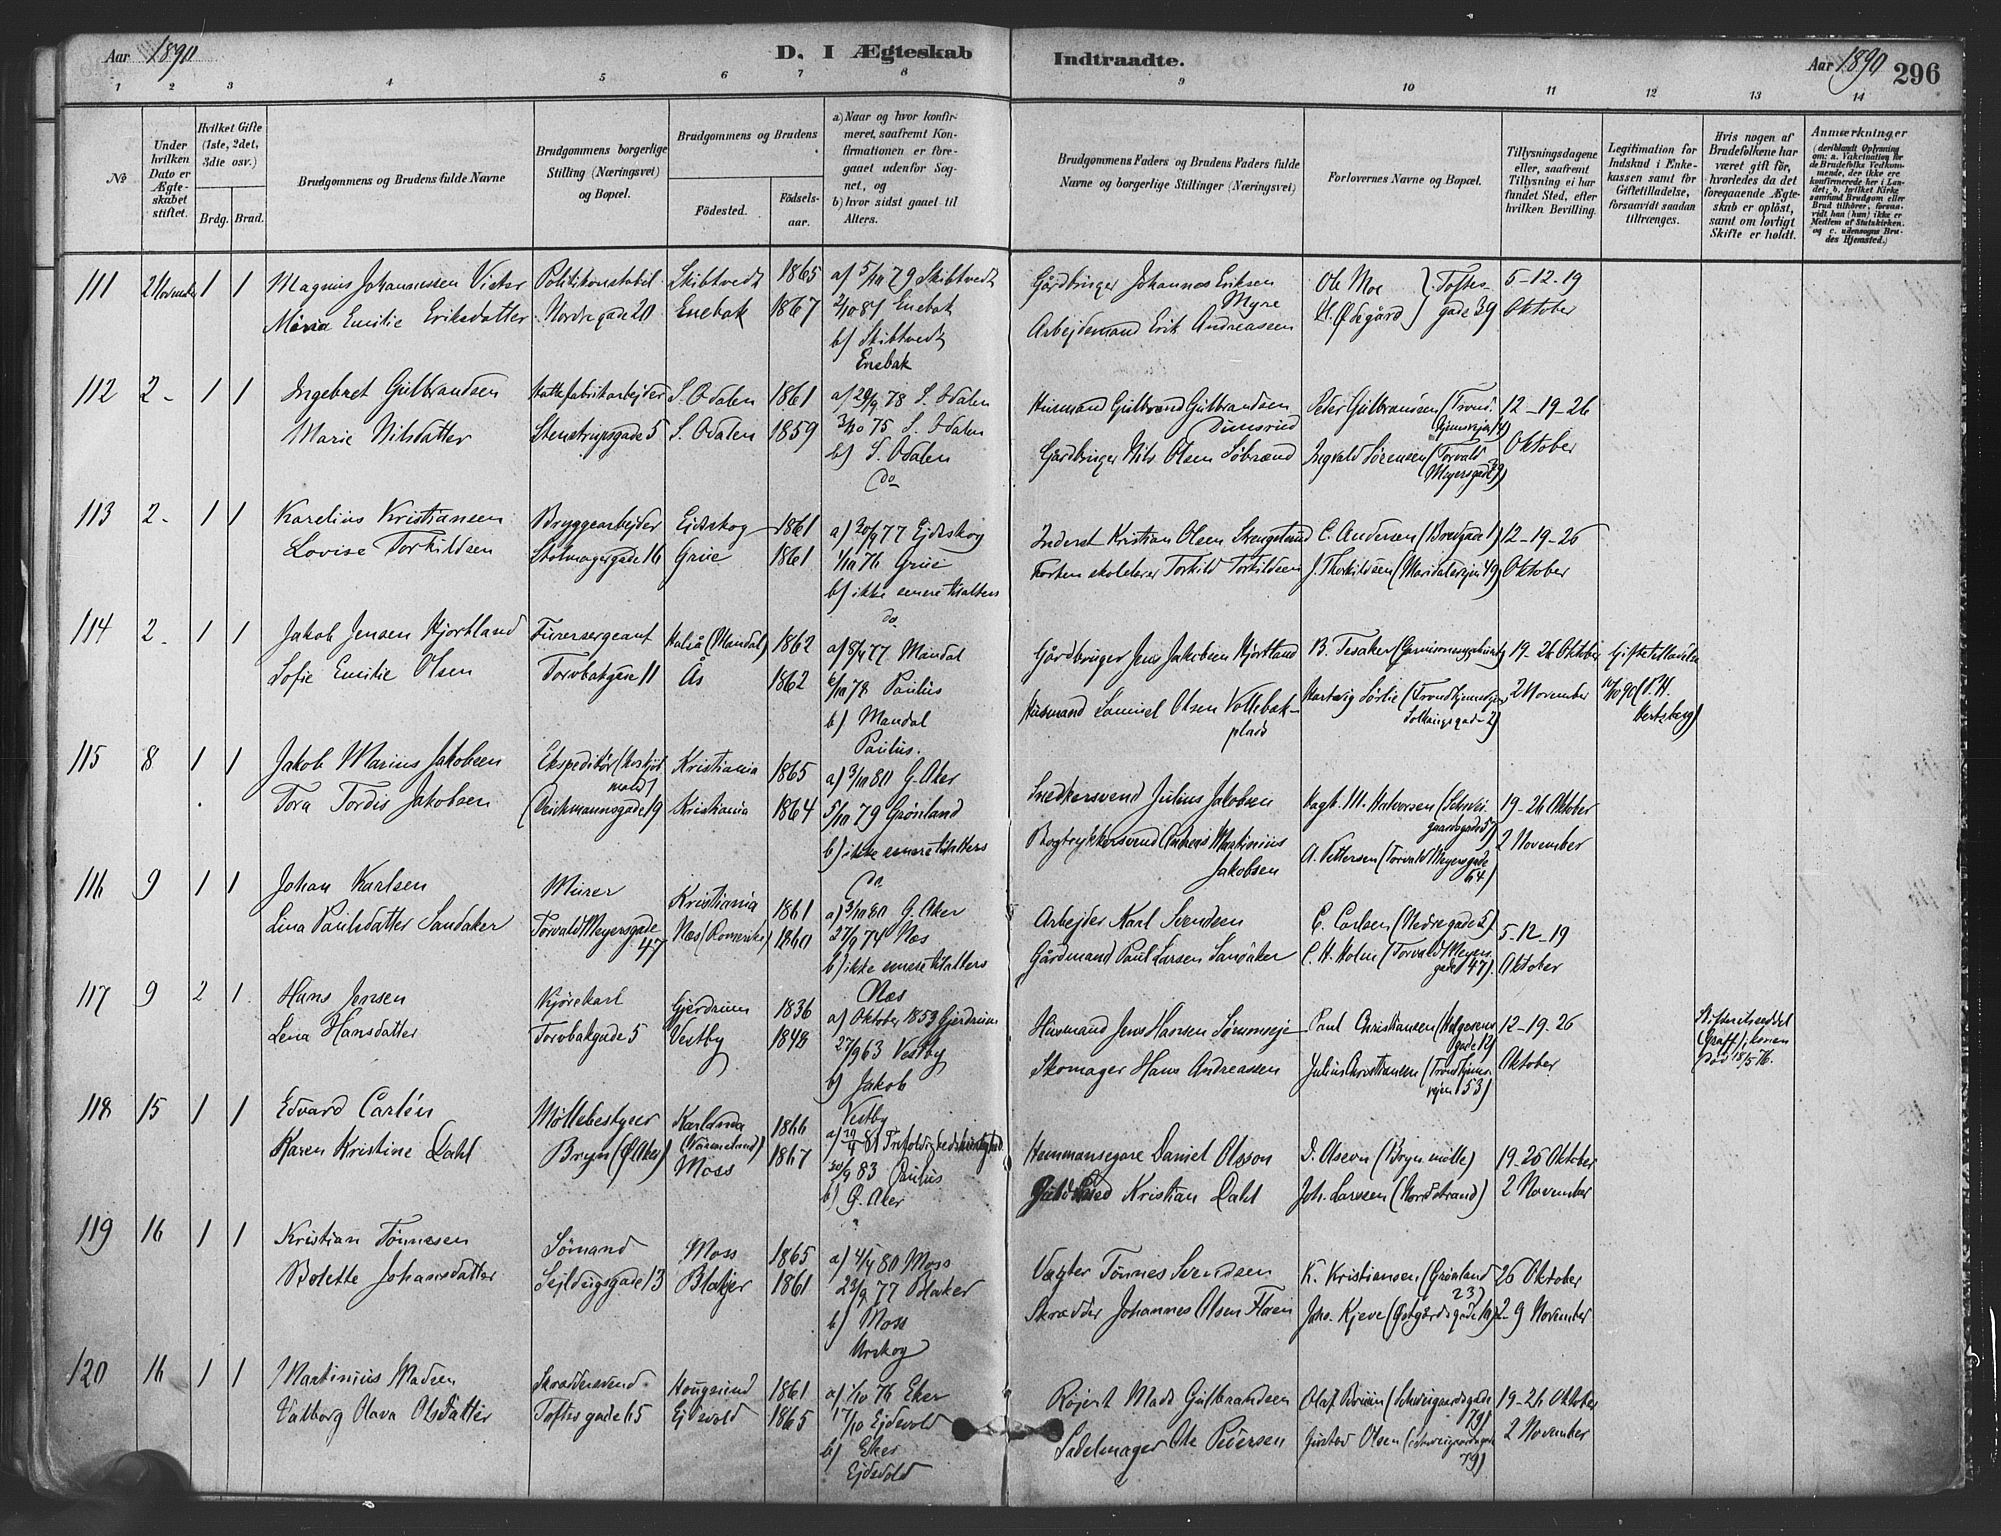 Aar 1890
D. I Ægteskab
Indtraadte.
Aar 1890 296
1 2 3 4 5 6 7 8 9 10 11 12 13 14
No
Under hvilken Dato er Ægteskabet stiftet.
Hvilket Gifte (1ste, 2det, 3die osv.)
Brdg. Brud.
Brudgommens og Brudens fulde Navne
Brudgommens borgerlige Stilling (Næringsvei) og Bopæl.
Brudgommens og Brudens
Fødested.
Fødselsaar.
a) Naar og hvor konfirmeret, saafremt Konfirmationen er foregaaet udenfor Sognet, og
b) hvor sidst gaaet til Alters.
Brudgommens Faders og Brudens Faders fulde Navne og borgerlige Stillinger (Næringsvei)
Forlovernes Navne og Bopæl.
Tillysningsdagene eller, saafremt Tillysning ei har fundet Sted, efter hvilken Bevilling.
Legitimation for Indskud i Enkekassen samt for Giftetilladelse, forsaavidt saadan tiltrænges.
Hvis nogen af Brudefolkene har været gift før, hvorledes da det foregaaende Ægteskab er opløst, samt om lovligt Skifte er holdt.
Anmærkninger
(deriblandt Oplysning om: a. Vakcination for de Brudefolks Vedkommende, der ikke ere konfirmerede her i Landet; b. hvilket Kirkesamfund Brudgom eller Brud tilhører, forsaavidt han (hun) ikke er Medlem af Statskirken. og c. udensogns Brudes Hjemsted.)
111 2 November 1 1 Magnus Johannessen Politikonstabel Skibtvedt 1865 a) 5/10 79 Skibtvedt Gårdbruger Johannes Eriksen Ole Moe Toftes- 5-12-19
Maria Emilie Eriksdatter Nordregade 20 Enebak 1867 2/10 81 Enebak Myre
Arbejdsmand Erik Andreassen H. Ødegård gade 39 Oktober
b) Skibtvedt
Enebak
112 2 - 1 1 Ingebret Gulbrandsen S. Odalen 1861 a) 78 S. Odalen Husmand Gulbrand Gulbrandsen Peter Gulbransen (Trond- 12-19-26
Marie Nilsdatter Stenstrupsgade 5 S. Odalen 1859 3/10 75 S. Odalen hjemsvejen
b) S. Odalen Gårdbruger Nils Olsen Ingvald Sørensen (Torvald Oktober
do Meyersgade 39)
113 2 - 1 1 Karelius Kristiansen Bryggearbejder Ejdskog 1861 a) 30/9 77 Ejdskog Inderst Kristian Olsen C. Andersen (Bredgade 1) 12-19-26
Lovise Torkildsen Stolmagergade 16 Grue 1861 1/10 76 Grue skolelærer Torkild Torkildsen J. Thorkildsen (Maridalsvejen 41) Oktober
b) ikke senere tilalters
do
114 2 - 1 1 Jakob Jensen Hjortland Furersergeant Halså (Mandal) 1862 a) 8/4 77 Mandal Gårdbruger Jens Jakobsen Hjortland B. Tesaker 19-26 Oktober Giftetilladelse
Sofie Emilie Olsen Torvbakgade 11 Ås 1862 6/10 78 Paulus Husmand Samuel Olsen Vollebak- Hartvig Sørlie (Trondhjemsvejen 2 November 10/10 90 (P. H.
b) Mandal plads Hertzberg)
Paulus.
115 8 1 1 Jakob Marius Jakobsen Ekspeditør Kristiania 1865 a) 3/10 80 G. Aker Snedkersvend Julius Jakobsen Hagb. M. Halvorsen (Schwei- 19-26 Oktober
Tora Tordis Jakobsen (Deichmannsgade 19 Kristiania 1864 5/10 79 Grønland gaardsgade 57)
b) ikke senere tilalters Bogtrykkersvend Andreas Martinius A. Pettersen (Torvald Meyersgade 2 November
do Jakobsen 64)
116 9 1 1 Johan Karlsen Murer Kristiania 1861 a) 3/10 80 G. Aker Arbejder Karl Svendsen C. Carlsen (Nedregade 5) 5-12-19
Lina Paulsdatter Sandaker Torvald Meyersgade 47 Næs (Romerike) 1860 27/9 74 Næs Gårdmand Paul Larsen Sandaker C. H. Holm (Torvald Meyers- Oktober
b) ikke senere tilalters gade 47)
Næs
117 9 2 1 Hans Jensen Kjørekarl Gjerdrum 1836 a) Oktober 1853 Gjerdrum Husmand Jens Hansen Paul Christiansen (Helgesens 12-19-26
Lena Hansdatter Torvbakgade 5 Vestby 1848 27/9 63 Vestby gade 12)
b) Jakob Skomager Hans Andreassen Julius Christiansen (Trondhjems- Oktober
Vestby vejen 53)
Skifteretsseddel
(Graff); konen
død 18/5 76.
118 15 1 1 Edvard Carlén Møllebestyrer Karlskoga 1866 a) Hemmansegare Daniel Olsson D. Olsson (Bryn mølle) 19-26 Oktober
Karen Kristine Dahl Bryn (Ø. Aker) (Värmeland) Moss 1867 30/9 83 Paulus Kristian Dahl Joh. Larssen (Nordstrand) 2 November
b) Ø. Aker
"
119 16 1 1 Kristian Tønnesen Sømand Moss 1865 a) 4/4 80 Moss Vægter Tønnes Svendsen K. Kristiansen (Grønland 26 Oktober
Bolette Johansdatter Sejldugsgade 13 Blakjer 1861 23/9 77 Blaker 23)
b) Moss Skrædder Johannes Olsen Floen Johs. Kjeve (Østgårdsgade 10) 2-9 November
Urskog
120 16 1 1 Martinius Madsen Skræddersvend Hougsund 1861 a) 1/10 76 Eker Røjert Mads Gulbrandsen Olaf Bruun (Schweigaardsgade 19-26 Oktober
Valborg Olava Olsdatter Toftesgade 65 Ejdsvold 1865 17/10 Ejdsvold 79)
b) Eker Sadelmager Ole Pedersen Gustav Olsen (Schweigaardsgade 2 November
Ejdsvold 79)